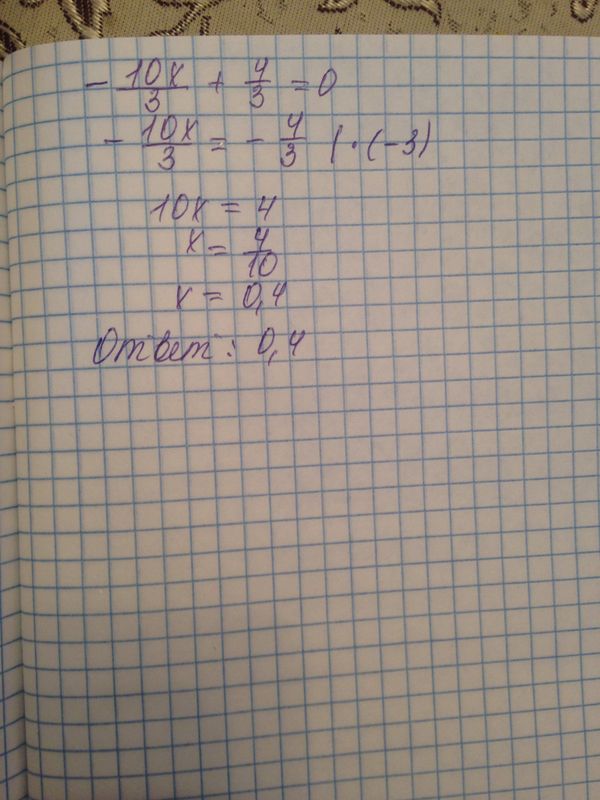 - 10x/3 + 4/3 = 0
- 10x/3 = - 4/3 | · (-3)
10x = 4
x = 4/10
x = 0,4
Ответ: 0,4